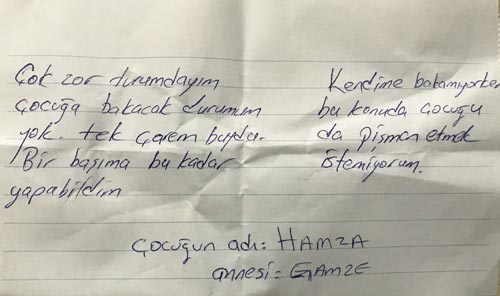 Çok zor durumdayım
çocuğa bakacak durumum
yok. tek çarem buydu.
Bir başıma bu kadar
yapabildim
Kendime bakamıyorken
bu konuda çocuğu
da pişman etmek
istemiyorum.
Çocuğun adı: HAMZA
annesi = GAMZE